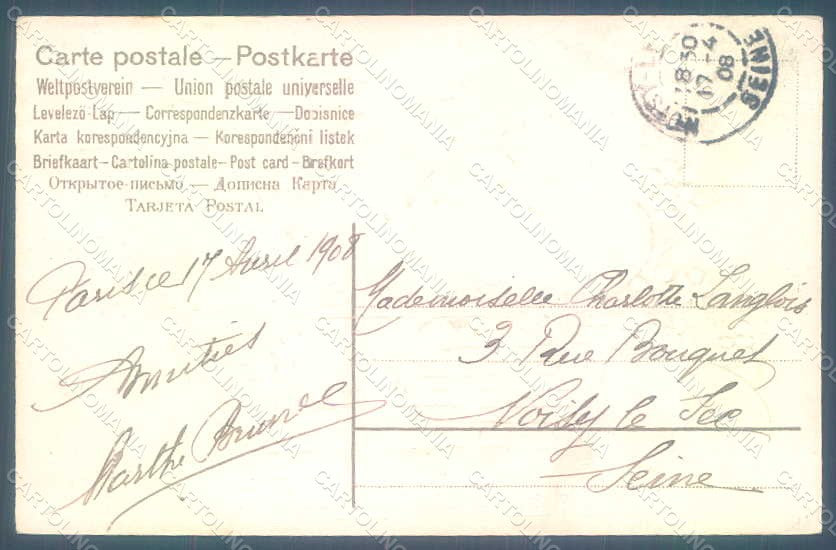 Carte postale — Postkarte
Weltpostverein — Union postale universelle
Levelező-Lap — Correspondenzkarte — Dopisnice
Karta korespondencyjna — Korespondenční lístek
Briefkaart — Cartolina postale — Post card — Brefkort
Открытое письмо — Дописна Карта
TARJETA POSTAL
NOISY-LE-SEC
18 30
17-4
08
SEINE
Paris le 17 Avril 1908
Amitiés
Marthe
Mademoiselle Charlotte Langlois
3 Rue Bouquet
Noisy le Sec
Seine
CARTOLINOMANIA